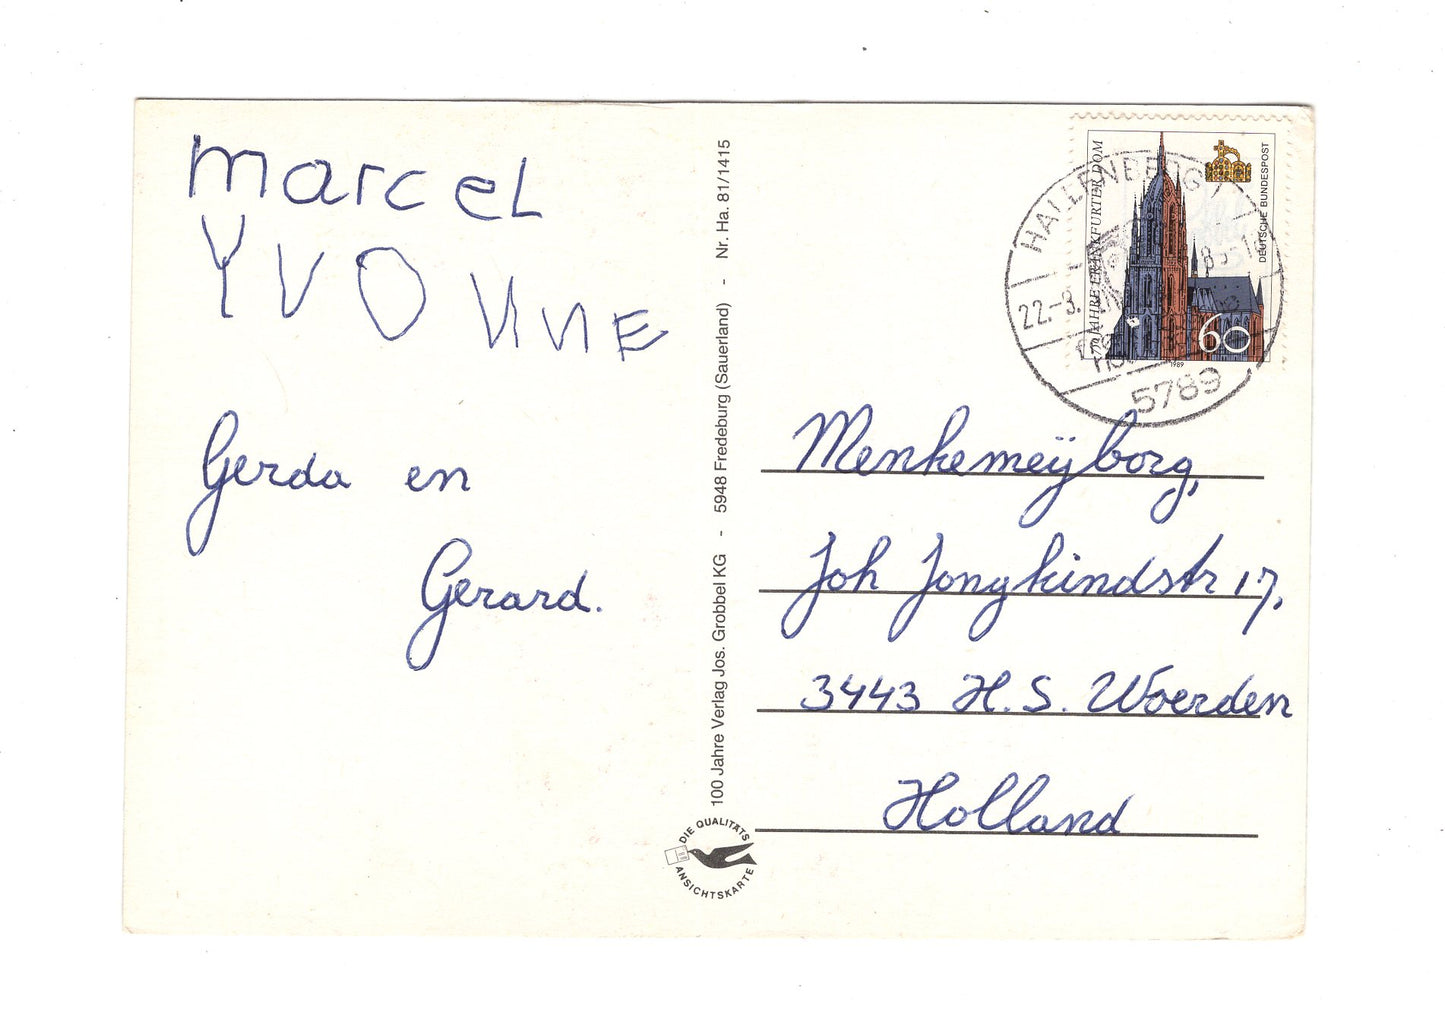 marcel
YVONNE
Gerda en
Gerard.
100 Jahre Verlag Jos. Grobbel KG - 5948 Fredeburg (Sauerland) - Nr. Ha. 81/1415
DIE QUALITÄTS
ANSICHTSKARTE
DEUTSCHE BUNDESPOST
FRANKFURTER DOM
60
1989
HALLENBERG
22.-3.
5789
Menkemeÿborg,
Joh Jongkindstr 17,
3443 H.S. Woerden
Holland